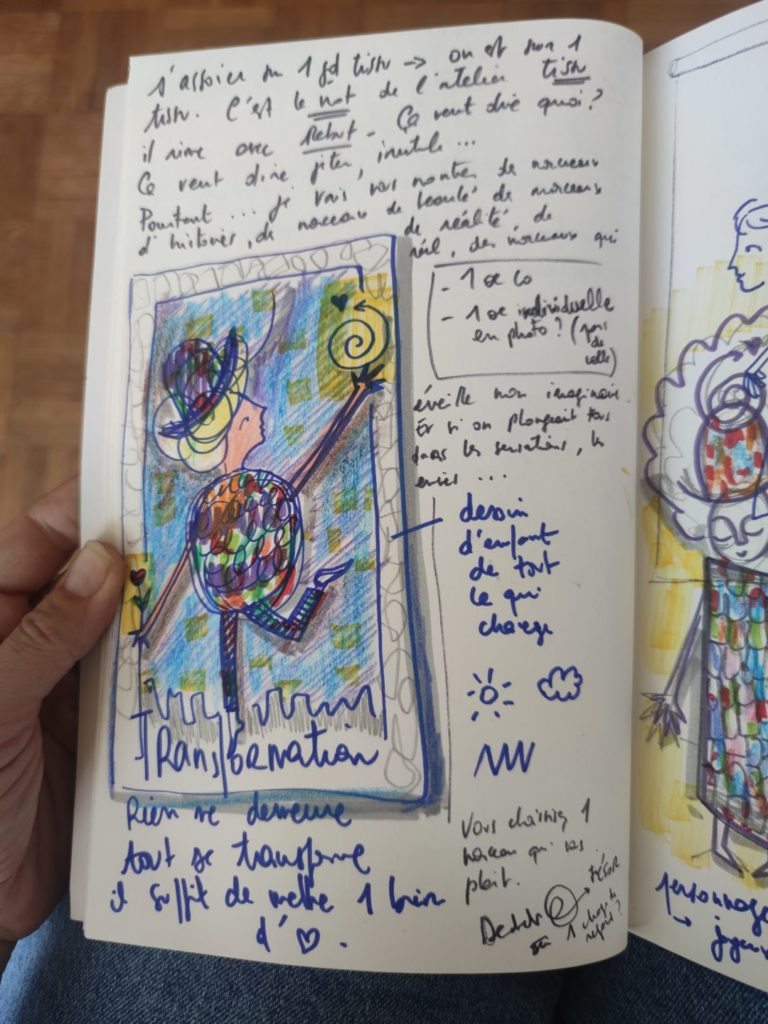 s'assoier sur 1 gd tissu → on est sur 1
tissu. C'est le mot de l'atelier tissu
il rime avec Rebut - Ça veut dire quoi?
Ça veut dire jeter, inutile...
Pourtant... je vais vous montrer des morceaux
d'histoires, de morceaux de beauté, de morceaux
de réalité, de
réel, des morceaux qui
- 1 œ co
- 1 œ individuelle
en photo? (pas de celle)
éveille mon imaginaire.
Et si on plongeait tous
dans les sensations, les
envies...
dessin
d'enfant
de tout
ce qui
change
Transformation
Rien ne demeure
tout se transforme
il suffit de mettre 1 brin
d'♡.
Vous choisissez 1
morceau qui vous
plait.
→ trésor
1 chose
personnage
→ joyeux